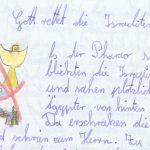 Gott rettet die Israeliten
Als der Pharao
blickten die Israeli
und sahen plötzlich
Ägypter von hinten
Da erschraken die
d schrien zum Herrn. Zu